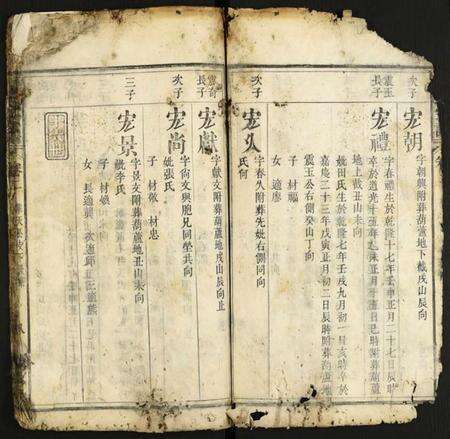 次子
宏朝
字朝興附葬葫蘆地下截戌山辰向
震玉
長子
宏禮
字春禮生於乾隆十七年壬申正月二十七日辰時
卒於道光十
年
未正月十
日巳時附葬葫蘆
地上截丑山未向
妣田氏生於乾隆
七年壬戌九月初一日亥時卒於
嘉慶二十三年戊寅正月初二日辰時附葬葫蘆地
震玉公右側癸山丁向
次子
宏久
字春久附葬先妣右側同向
氏何
子 材福
女 適廖
震奇
長子
宏獻
字獻文附葬葫蘆地戌山辰向止
次子
宏尚
字尚文與胞兄同塋共向
妣張氏
子 材敬 材忠
三子
宏景
字景文附葬葫蘆地丑山未向
妣李氏
子 材
女 長適龔 次適邱